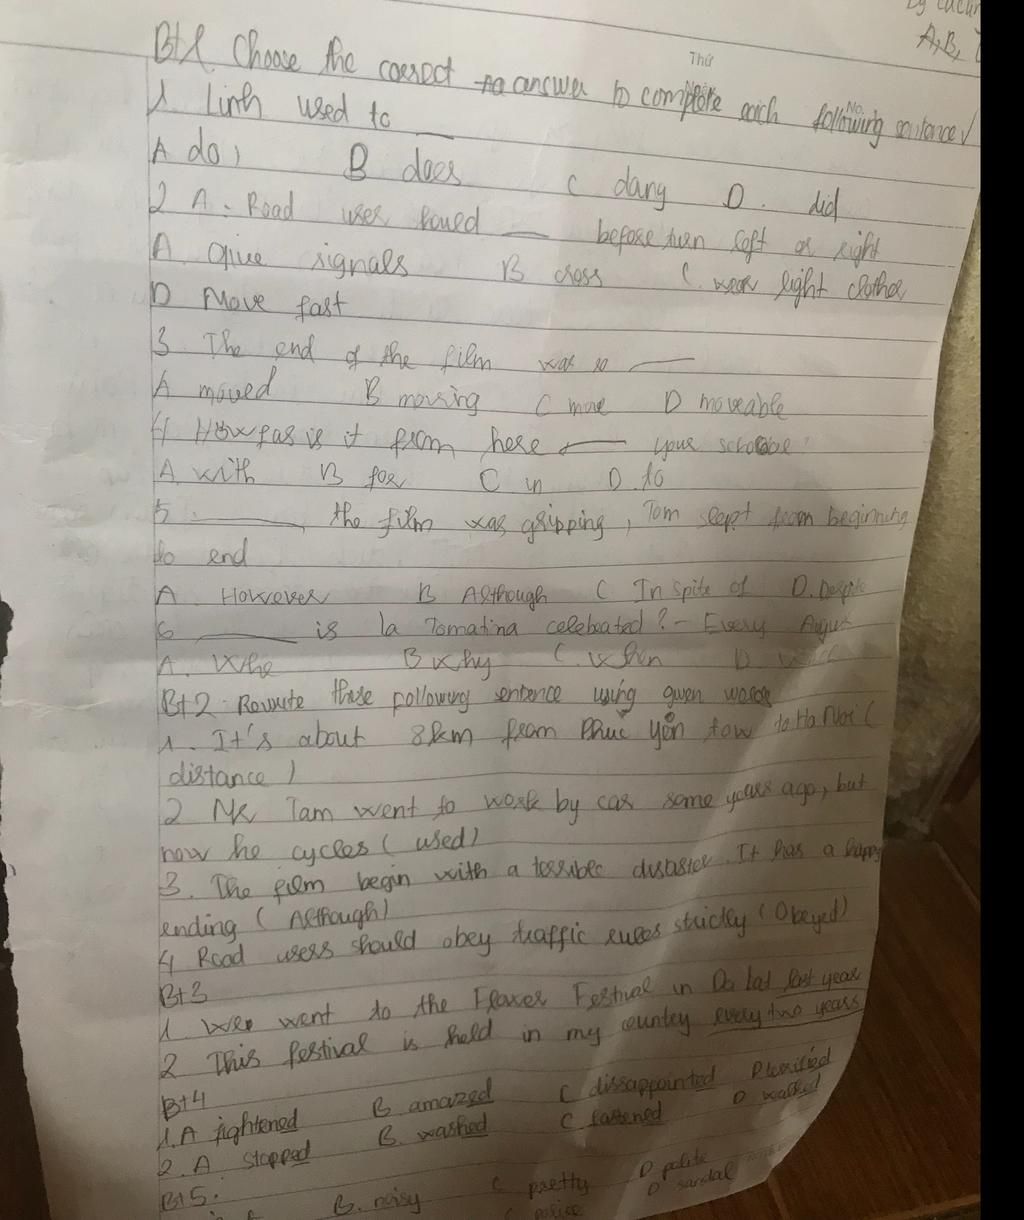 A, B,
Thứ
No.
Bt1. Choose the correct answer to complete each following sentence
1 Linh used to __
A do, B does C dang D. did
2 A. Road user sould __ before turn left or right
A. give signals B cross C. wear light clother
D Move fast
3 The end of the film was so __
A moved B moving C move D moveable
4 How far is it from here __ your
A. with B for C in D. to
5 ______, the film was gripping, Tom slept from beginning
to end
A. However B Although C In spite of D. Despite
6 ______ is la Tomatina celebeated? - Every
A. Who B why C. when D.
Bt2. Rewrite these following sentence using given words
1. It's about 8km from Phuc yên tow to Ha Noi (
distance )
2 Mr Tam went to work by car some years ago, but
now he cycles ( used )
3. The film begin with a terrible disaster. It has a happy
ending ( Although)
4 Road users should obey traffic rules strictly (Obeyed)
Bt3
1. went to the Flower Festival in Da lat last year
2 This festival is held in my country every two years
Bt4
1. A fightened B amazed C dissappointed D terrified
2. A stopped B. washed C fastened D walked
Bt5.
B. noisy C pretty D polite
C police D sandal